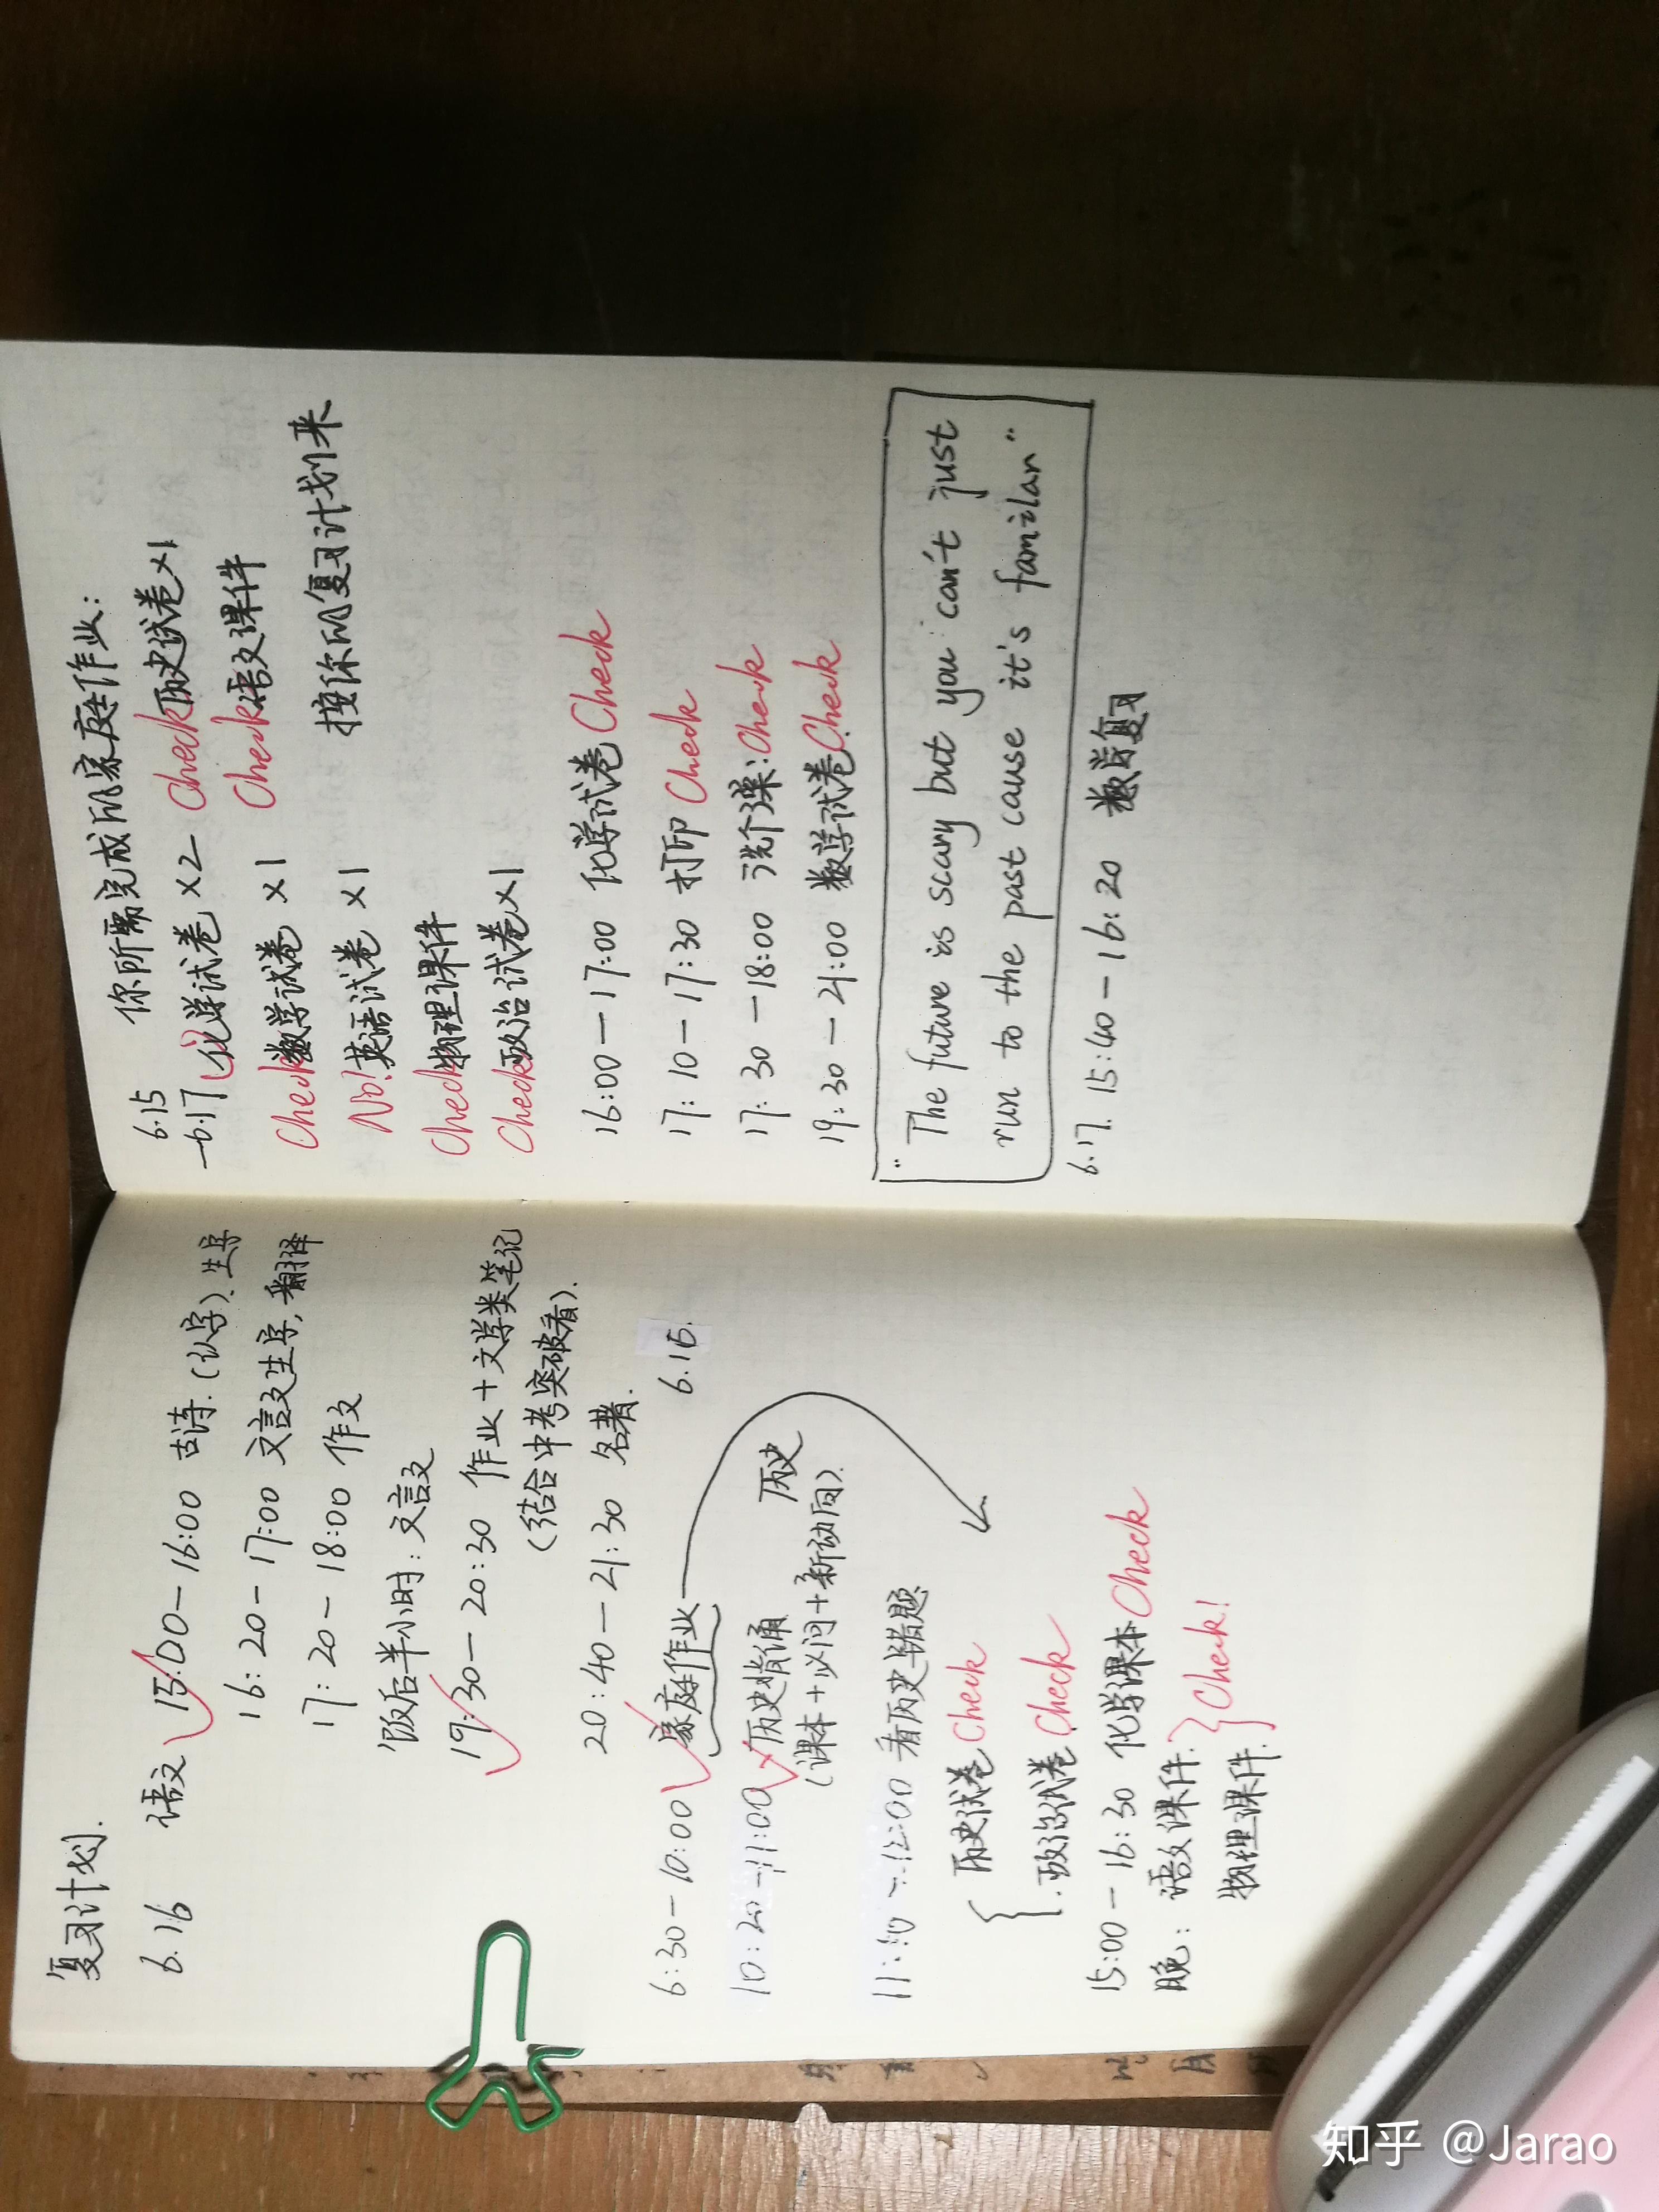 复习计划.
6.16 语文 15:00—16:00 古诗.(认字).生字
16:20—17:00 文言文生字,翻译
17:20—18:00 作文
饭后半小时:文言文
19:30—20:30 作业+文学类笔记
(结合中考突破看).
20:40—21:30 名著.
6:30—10:00 家庭作业 6.15.
10:20—11:00 历史背诵 历史
(课本+必问+新动向).
11:10—12:00 看历史错题
{ 历史试卷 Check
政治试卷 Check
15:00—16:30 化学课本 Check
晚:语文课件.
物理课件. } Check!
6.15 你所需完成的家庭作业:
—6.17 化学试卷×2 Check 历史试卷×1
Check 数学试卷×1 Check 语文课件
No! 英语试卷×1 按你的复习计划来
Check 物理课件
Check 政治试卷×1
16:00—17:00 化学试卷 Check
17:10—17:30 打印 Check
17:30—18:00 洗个澡: Check
19:30—21:00 数学试卷 Check
"The future is scary but you can't just
run to the past cause it's familar"
6.17. 15:40—16:20 数学复习
知乎 @Jarao